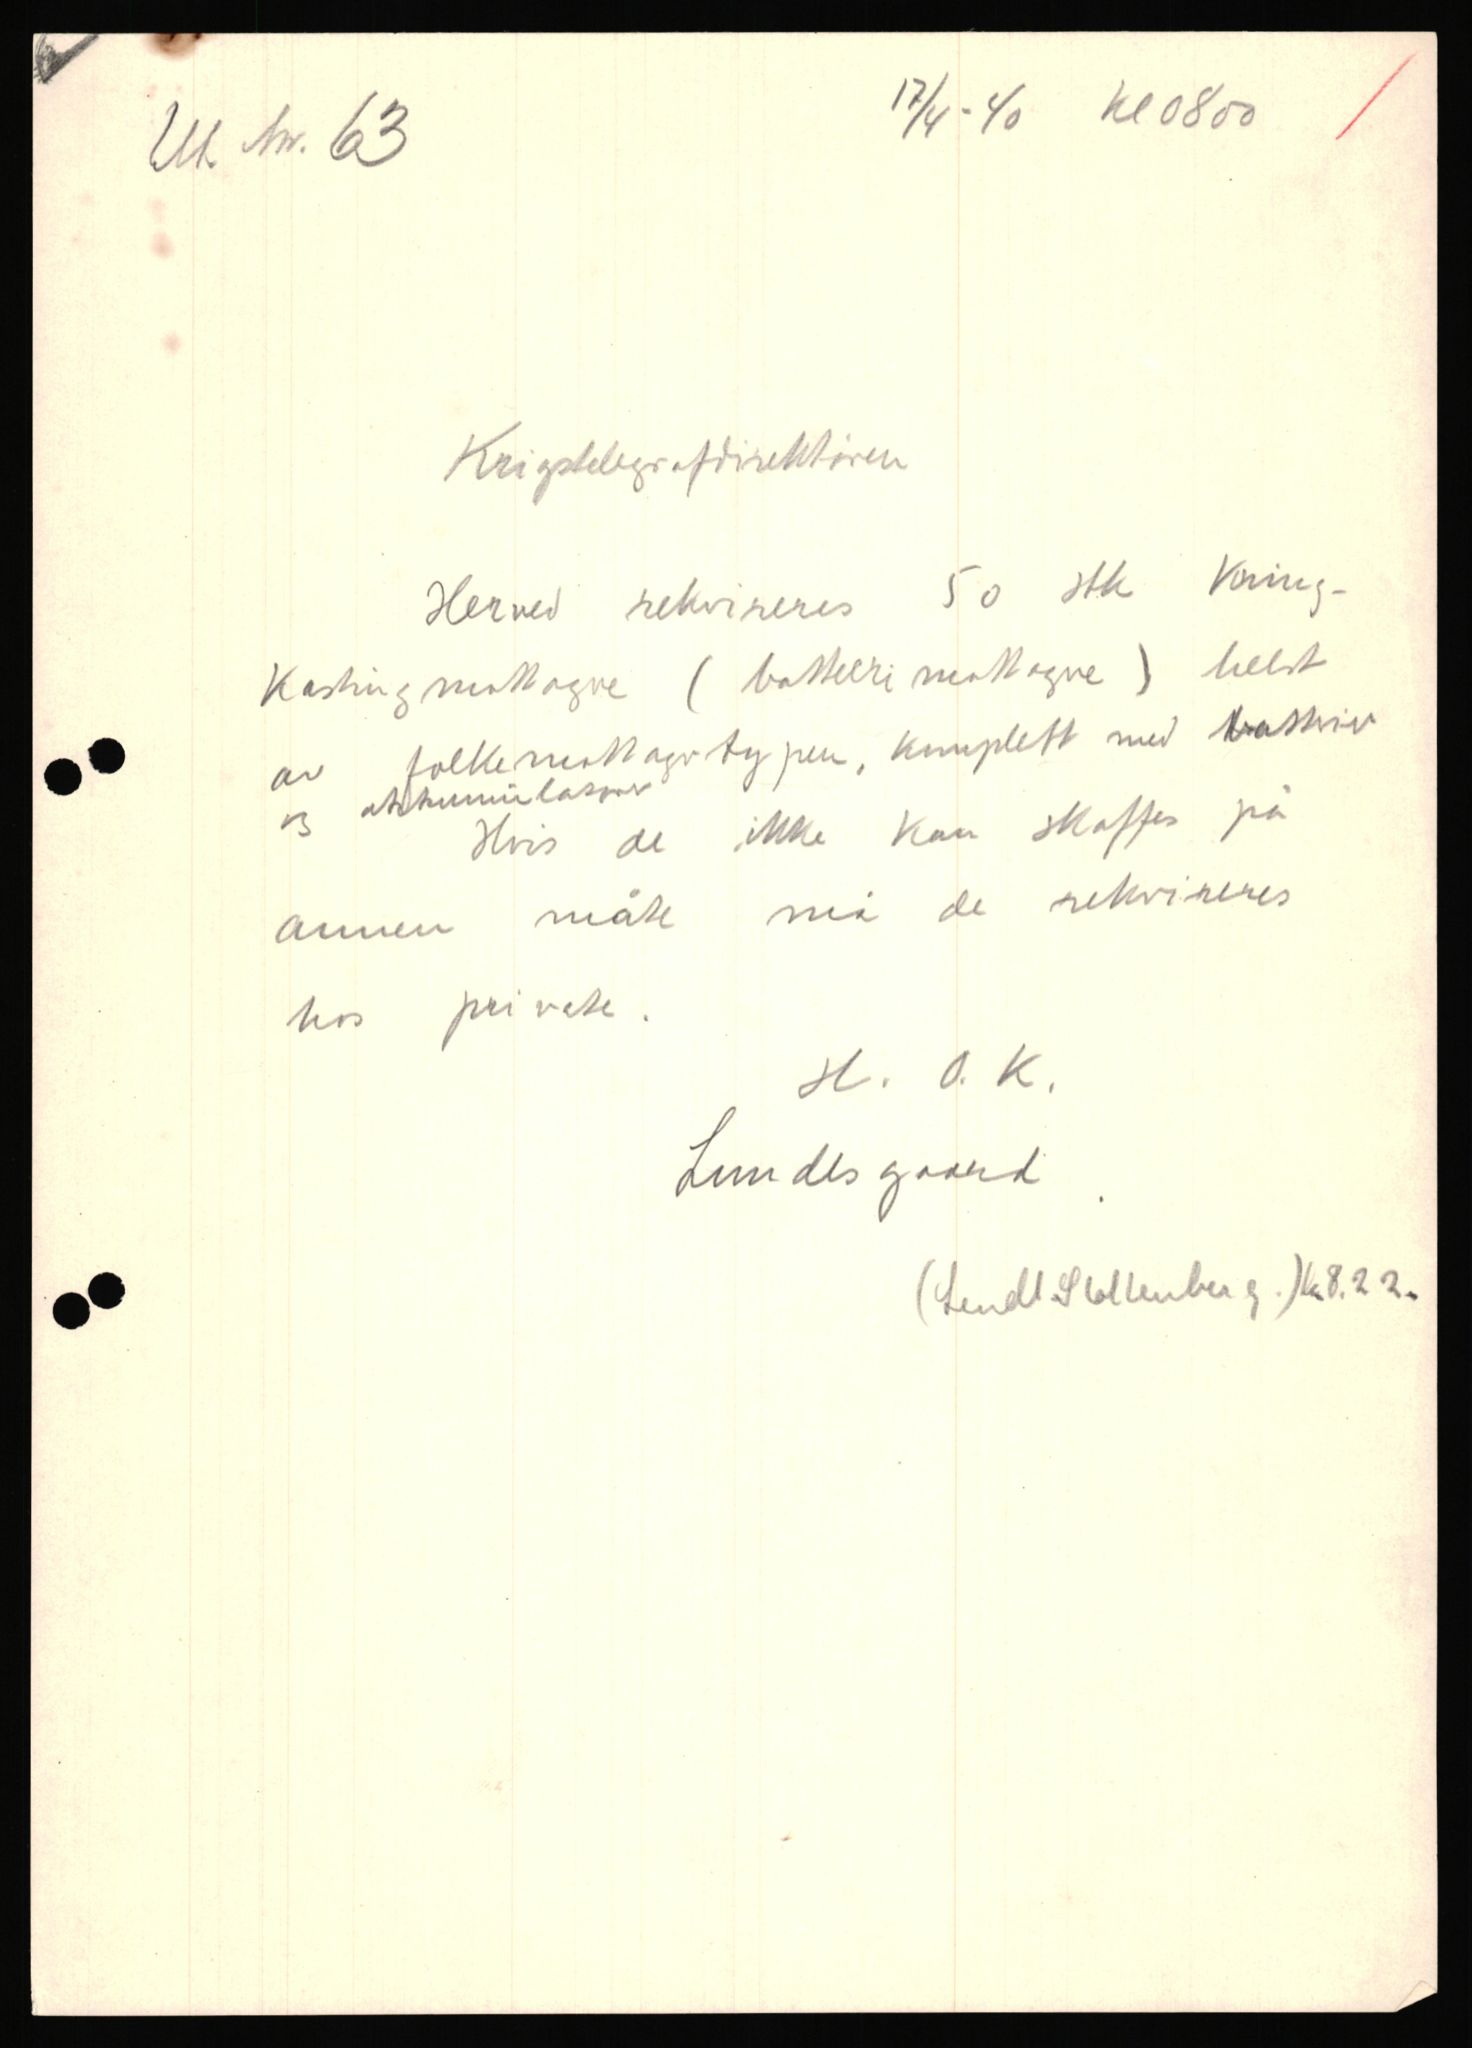 Ut. Nr. 63
17/4-40 Kl 0800
Krigstelegrafdirektøren
Herved rekvireres 50 stk Kring-
kastingmottagre ( batterimottagre ) helst
av folkemottagertypen, komplett med batterier
og akkumulatorer
Hvis de ikke kan skaffes på
annen måte må de rekvireres
hos private.
H. O. K.
Lundesgaard.
(Sendt Stoltenberg.) kl 8.22.